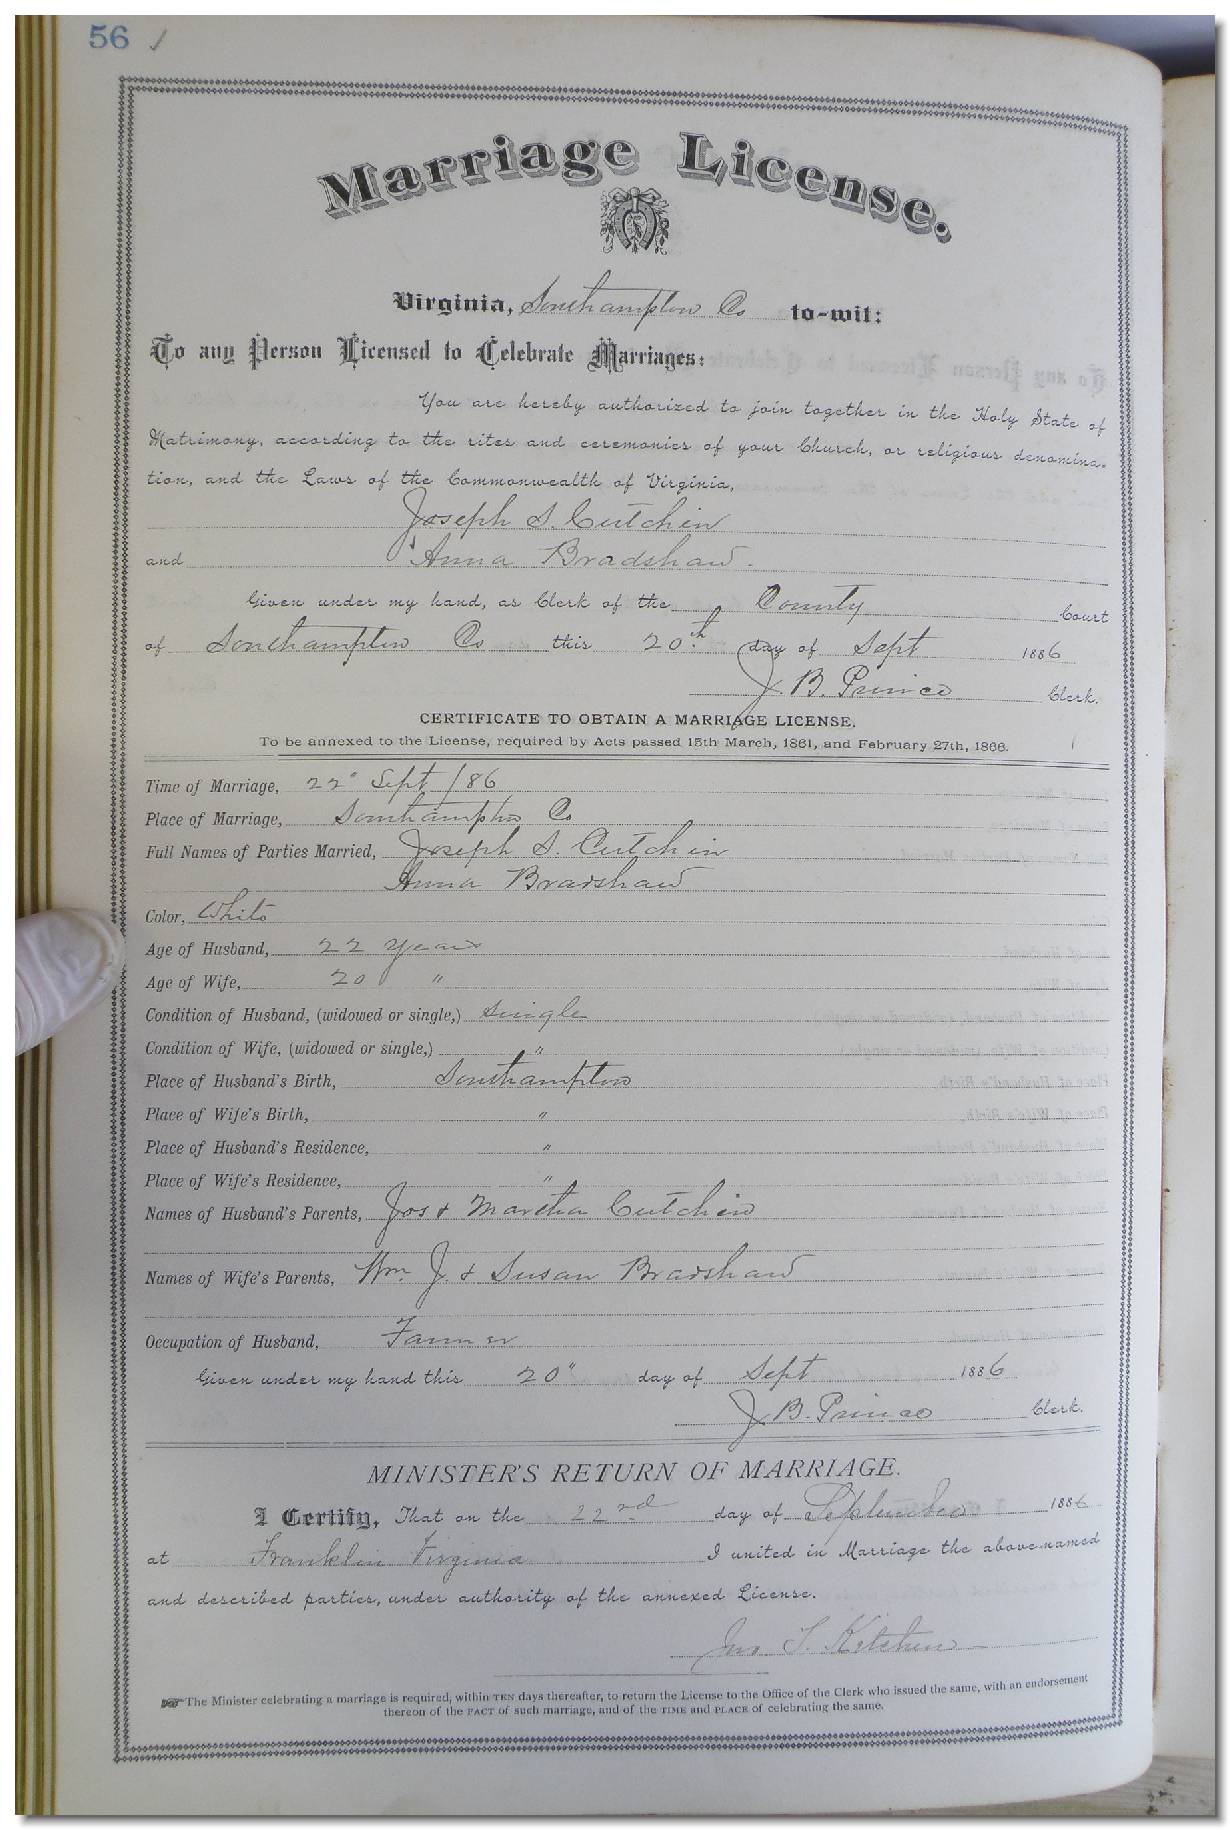 56
Marriage License.
Virginia, Southampton Co to-wit:
To any Person Licensed to Celebrate Marriages:
You are hereby authorized to join together in the Holy State of
Matrimony, according to the rites and ceremonies of your Church, or religious denomina-
tion, and the Laws of the Commonwealth of Virginia,
Joseph S. Cutchin
and Anna Bradshaw.
Given under my hand, as Clerk of the County Court
of Southampton Co this 20th day of Sept 1886
J. B. Prince Clerk.
CERTIFICATE TO OBTAIN A MARRIAGE LICENSE.
To be annexed to the License, required by Acts passed 15th March, 1861, and February 27th, 1866.
Time of Marriage, 22" Sept /86
Place of Marriage, Southampton Co
Full Names of Parties Married, Joseph S. Cutchin
Anna Bradshaw
Color, White
Age of Husband, 22 years
Age of Wife, 20 "
Condition of Husband, (widowed or single,) Single
Condition of Wife, (widowed or single,) "
Place of Husband's Birth, Southampton
Place of Wife's Birth, "
Place of Husband's Residence, "
Place of Wife's Residence, "
Names of Husband's Parents, Jos & Martha Cutchin
Names of Wife's Parents, Wm. J. & Susan Bradshaw
Occupation of Husband, Farmer
Given under my hand this 20" day of Sept 1886
J. B. Prince Clerk.
MINISTER'S RETURN OF MARRIAGE.
I Certify, That on the 22nd day of September 1886
at Franklin Virginia I united in Marriage the above-named
and described parties, under authority of the annexed License.
Jno. T. Kitchen
The Minister celebrating a marriage is required, within TEN days thereafter, to return the License to the Office of the Clerk who issued the same, with an endorsement
thereon of the FACT of such marriage, and of the TIME and PLACE of celebrating the same.